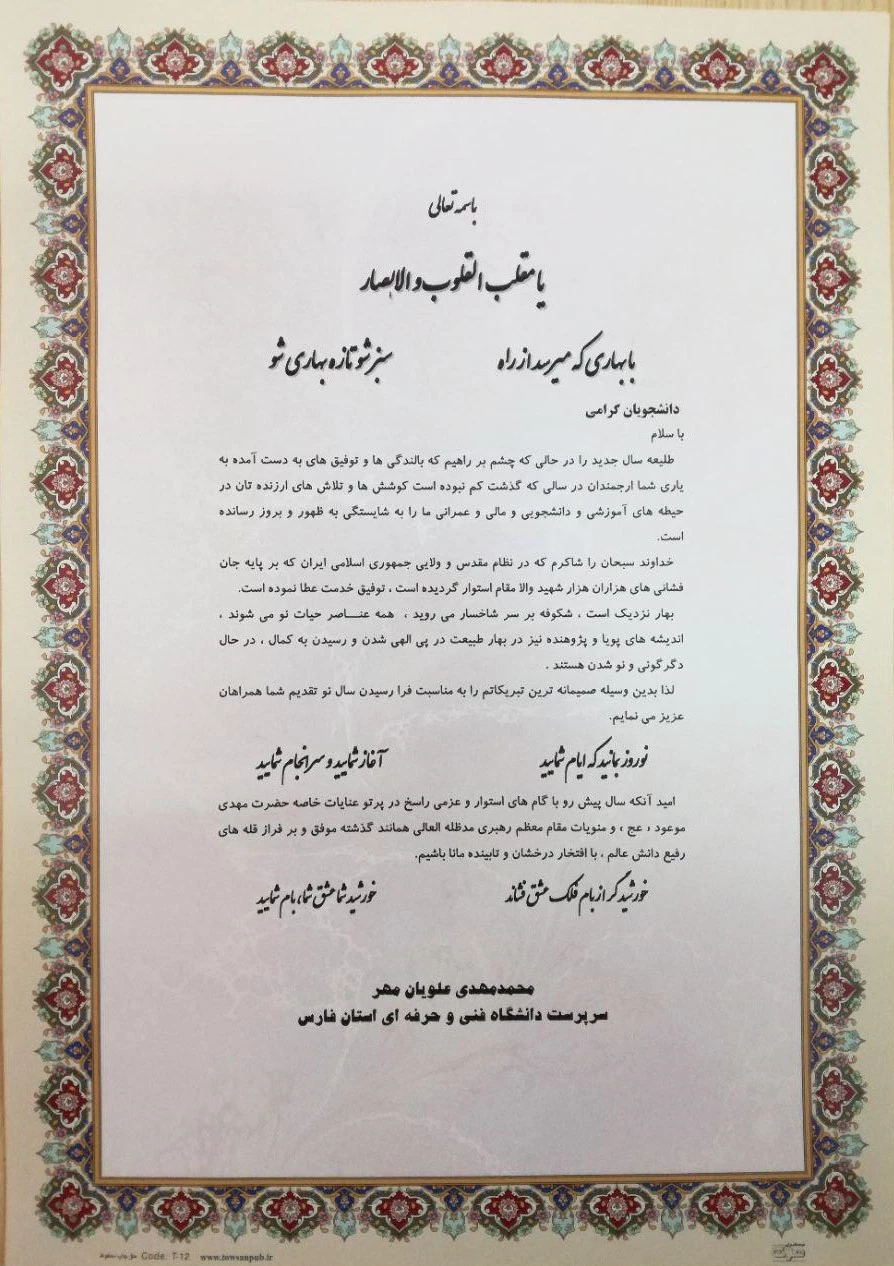 باسمه تعالی
یا مقلب القلوب و الابصار
با بهاری که میرسد از راه سبز شو تازه بهاری شو
دانشجویان گرامی
با سلام
طلیعه سال جدید را در حالی که چشم بر راهیم که بالندگی ها و توفیق های به دست آمده به
یاری شما ارجمندان در سالی که گذشت کم نبوده است کوشش ها و تلاش های ارزنده تان در
حیطه های آموزشی و دانشجویی و مالی و عمرانی ما را به شایستگی به ظهور و بروز رسانده
است.
خداوند سبحان را شاکرم که در نظام مقدس و ولایی جمهوری اسلامی ایران که بر پایه جان
فشانی های هزاران هزار شهید والا مقام استوار گردیده است ، توفیق خدمت عطا نموده است.
بهار نزدیک است ، شکوفه بر سر شاخسار می روید ، همه عنـــاصر حیات نو می شوند ،
اندیشه های پویا و پژوهنده نیز در بهار طبیعت در پی الهی شدن و رسیدن به کمال ، در حال
دگرگونی و نو شدن هستند .
لذا بدین وسیله صمیمانه ترین تبریکاتم را به مناسبت فرا رسیدن سال نو تقدیم شما همراهان
عزیز می نمایم.
نوروز بمانید که ایام شمایید آغاز شمایید و سرانجام شمایید
امید آنکه سال پیش رو با گام های استوار و عزمی راسخ در پرتو عنایات خاصه حضرت مهدی
موعود « عج » و منویات مقام معظم رهبری مدظله العالی همانند گذشته موفق و بر فراز قله های
رفیع دانش عالم ، با افتخار درخشان و تابینده مانا باشیم.
خورشید گر از بام فلک عشق فشاند خورشید شما عشق شما، بام شمایید
محمدمهدی علویان مهر
سرپرست دانشگاه فنی و حرفه ای استان فارس
Code: T-12 www.towsanpub.ir